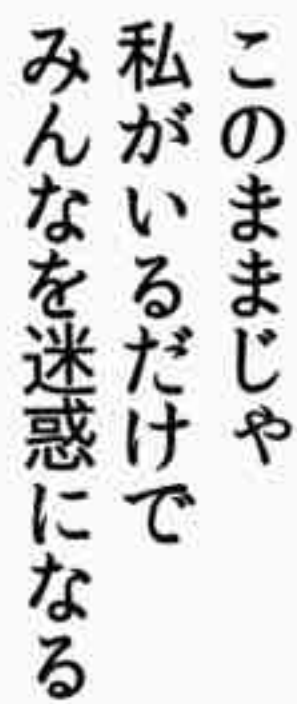 このままじゃ
私がいるだけで
みんなを迷惑になる